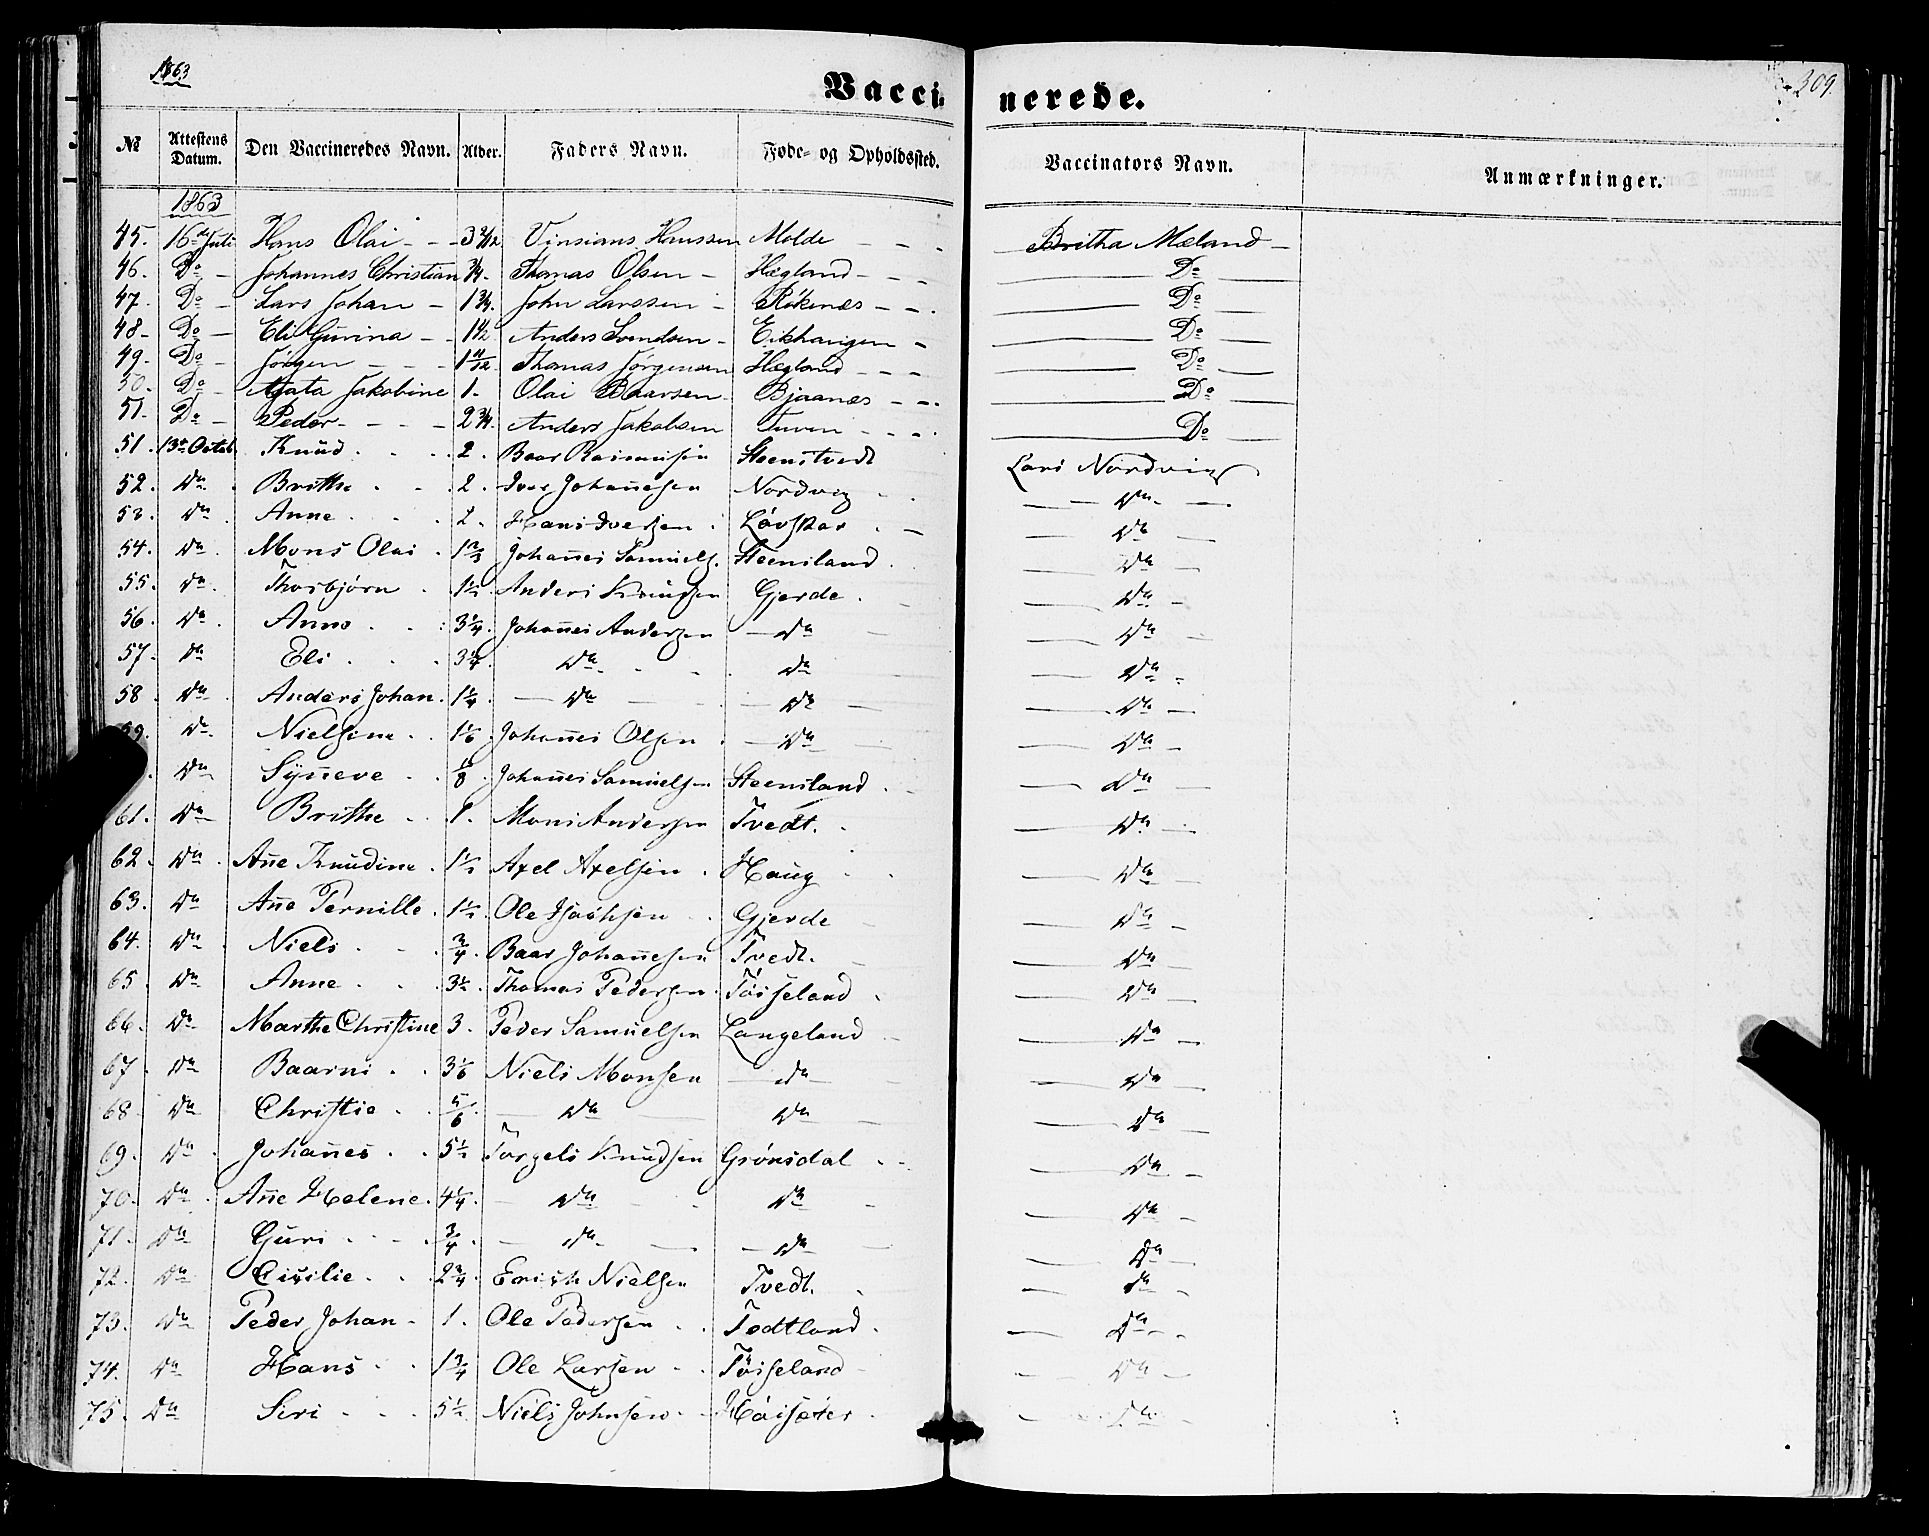 1863
Vaccinerede.
309.
№ Attestens Datum. Den Vaccineredes Navn. Alder. Faders Navn. Føde- og Opholdssted. Vaccinators Navn. Anmærkninger.
1863
45. 16de Juli Hans Olai - - Hanssen Molde - - - Britha Mæland -
46. Do - Johannes Christian 3/4. Thomas Olsen - Hægland - - Do
47. Do - Lars Johan - 1 3/4. John Larssen - Røkenes - - Do
48. Do - Eli Gurina - - 1 1/2 Anders Svendsen - Eikhaugen - Do
49. Do - Jørgen - - - 1 11/12 Thomas Jørgensen Hægland - - - Do
50. Do - Agata Jakobine 1. Olai Baarsen - Bjaanæs - - Do
51. Do - Peder - - - 2 3/4 Anders Jakobsen Tuven - - - Do
51. 13de Octob. Knud . . . 2. Baar Rasmusen Steenstvedt Lars Nordvig
52. Do . Brithe . . . 2. Iver Johan̄esen Nordvig . . Do
53. Do . Anne . . . 2. Hans Iversen . Løvskar . - Do
54. Do . Mons Olai . 1 2/3 Johan̄es Samuels. Steensland . Do
55. Do . Thorbjørn . 1 1/2. Anders Knudsen Gjerde . Do
56. Do . Anna . . . 3 1/4. Johan̄es Andersen Do Do
57. Do Eli . . . 3 1/4. Do . . Do Do
58 Do . Anders Johan . 1 1/4. Do Do Do
59. Do Nielsine . . 1 1/6 . Johan̄es Olsen . Do Do
Do Syn̄eve . . Johan̄es Samuelsen Steensland . Do
61. Do Brithe . . 1. Mons Andersen Tvedt. . Do
62. Do . An̄e Knudine . 1 1/2 Axel Axelsen . Haug . . Do
63. Do An̄e Pernille . 1 1/2. Ole Gjerde Do
64. Do . Niels . . . 3/4. Baar Johan̄esen Tvedt. Do
65 Do Anne . . . 3 1/2. Thomas Pedersen . Tøsseland . Do
66. Do Marthe Christine 3. Peder Samuelsen Langeland Do
67. Do Baarni . . 3 1/6 Niels Monsen Do Do
68. Do Christie . . 5/6. Do Do Do
69. Do . Johan̄es . . 5 1/2 Torgels Knudsen Grónsdal . . Do
70. Do . An̄e Helene . 4 1/4. Do Do Do
71. Do Guri . . . 3/4. Do Do Do
72. Do Cisilie . . 2 3/4. Erich Nielsen Tvedt. Do
73. Do Peder Johan . 1. Ole Pedersen . . Todtland . Do
74. Do Hans . . 1 3/4 Ole Larsen . . Tøsseland Do
75. Do Siri . . . 5 1/2 Niels Johnsen . . Høisæter . Do